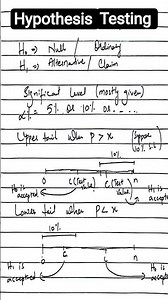 Hypothesis Testing
H₀ ⇒ Null / Ordinary
H₁ ⇒ Alternative / Claim
Significant Level (mostly given)
α% = 5% or 10% or - - - .
Upper tail when P > x (Suppose 10%
10%
0 C₁(Test Value) C₂(Test Value) n
H₀ is accepted
H₁ is accepted
Lower tail when P < x
10%
0 C₁ n
H₁ is accepted
H₀ is accepted